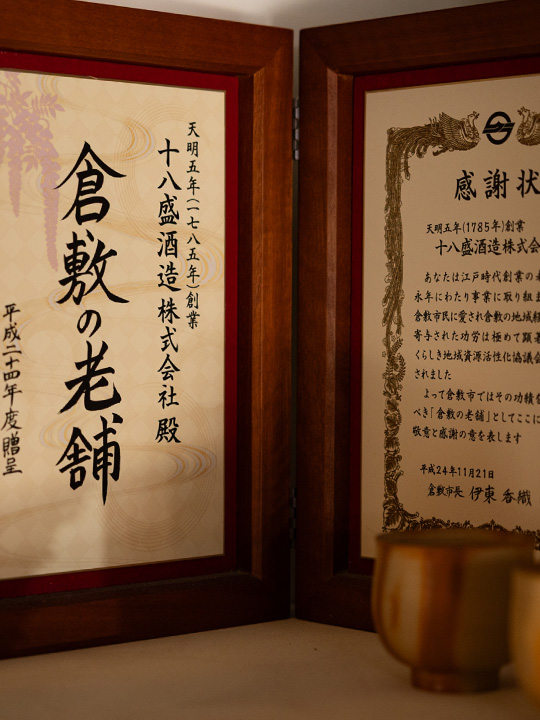 天明五年(一七八五年)創業
十八盛酒造株式会社 殿
倉敷の老舗
平成二十四年度贈呈
感謝状
天明五年(1785年)創業
十八盛酒造株式会
あなたは江戸時代創業の
永年にわたり事業に取り組
倉敷市民に愛され倉敷の地域
寄与された功労は極めて顕
くらしき地域資源活性化協議会
されました
よって倉敷市ではその功績を
べき「倉敷の老舗」としてここに
敬意と感謝の意を表します
平成24年11月21日
倉敷市長 伊東 香織